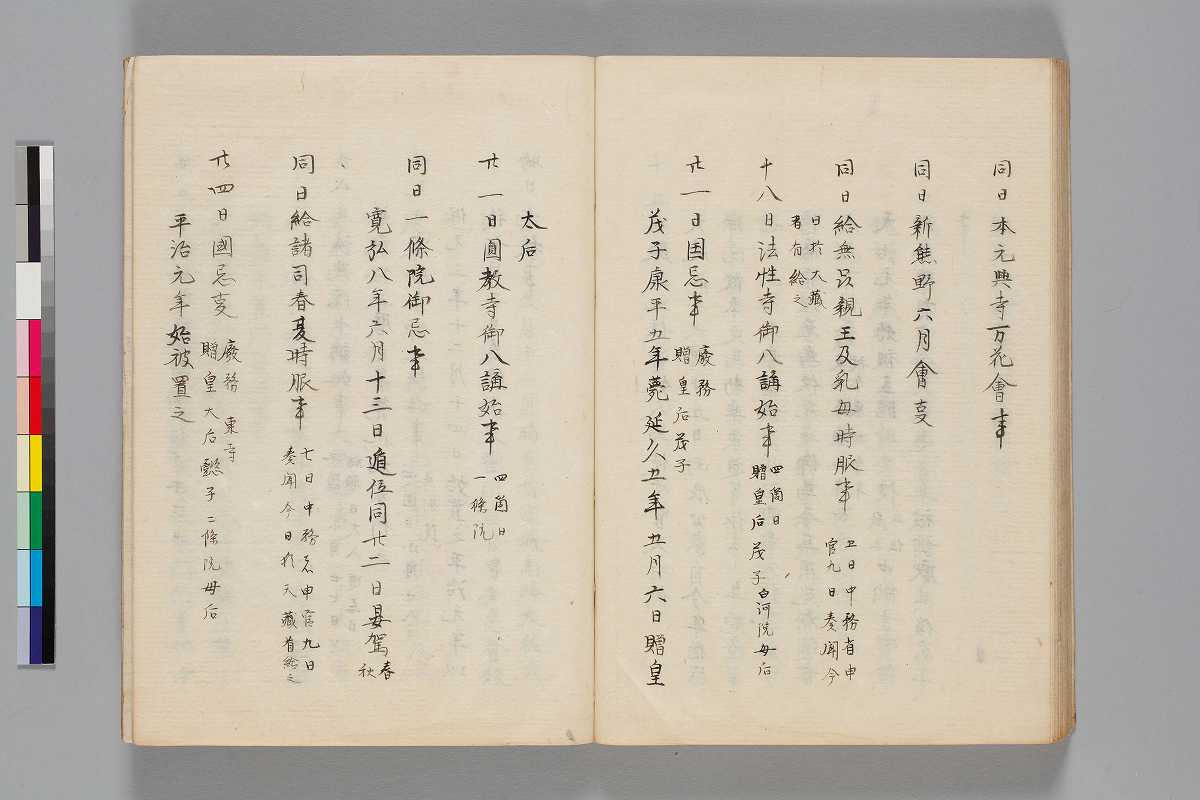 同日本元興寺万花會事
同日新熊野六月會事
同日給無品親王及乳母時服事
五日中務省申
官九日奏聞今
日於大藏
省有給之
十八日法性寺御八講始事
四箇日
贈皇后茂子白河院母后
廿一日国忌事
廢務
贈皇后茂子
茂子康平五年薨延久五年五月六日贈皇
太后
廿一日圓教寺御八講始事
四箇日
一條院
同日一條院御忌事
寛弘八年六月十三日遁位同廿二日晏駕
春
秋
同日給諸司春夏時服事
七日中務省申官九日
奏聞今日於大藏省給之
廿四日國忌事
廢務 東寺
贈皇太后懿子二條院母后
平治元年始被置之